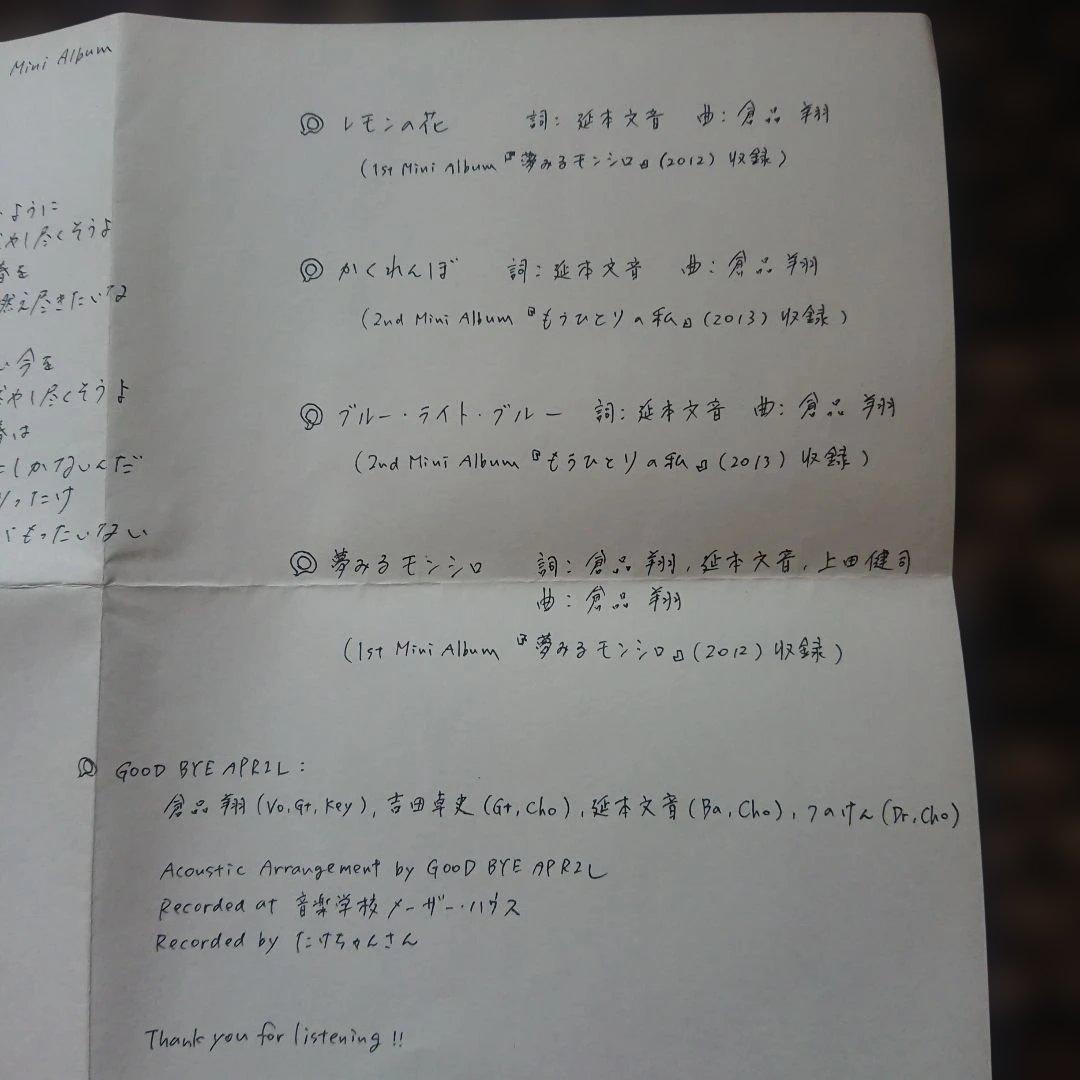 Mini Album
ように
やし尽くそうよ
春を
燃え尽きたいな
い今を
やし尽くそうよ
春は
にしかないんだ
りったけ
もったいない
レモンの花 詞:延本文音 曲:倉品 翔
(1st Mini Album『夢みるモンシロ』(2012) 収録)
かくれんぼ 詞:延本文音 曲:倉品 翔
(2nd Mini Album『もうひとりの私』(2013) 収録)
ブルー・ライト・ブルー 詞:延本文音 曲:倉品 翔
(2nd Mini Album『もうひとりの私』(2013) 収録)
夢みるモンシロ 詞:倉品 翔, 延本文音, 上田健司
曲:倉品 翔
(1st Mini Album『夢みるモンシロ』(2012) 収録)
GOOD BYE APRIL:
倉品 翔(Vo, Gt, Key), 吉田卓史(Gt, Cho), 延本文音(Ba, Cho), つのけん(Dr, Cho)
Acoustic Arrangement by GOOD BYE APRIL
Recorded at 音楽学校メーザー・ハウス
Recorded by たけちゃんさん
Thank you for listening!!